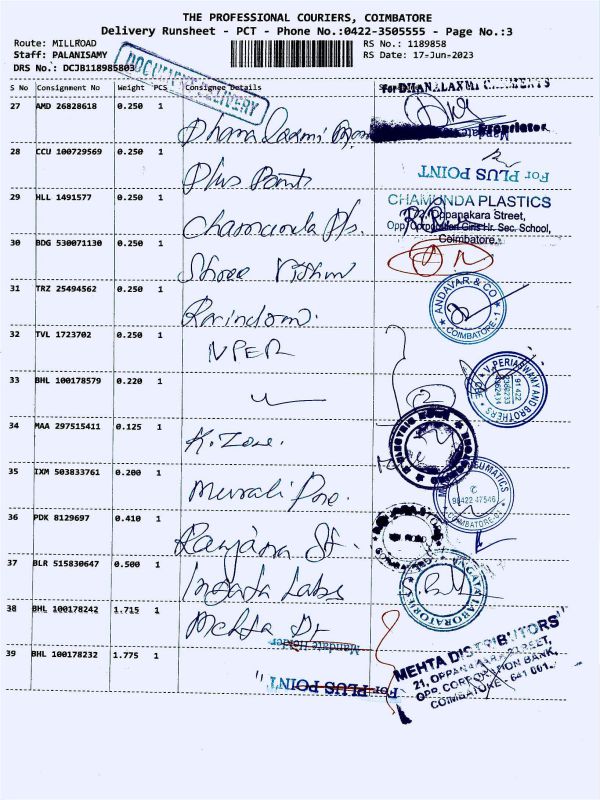 THE PROFESSIONAL COURIERS, COIMBATORE
Delivery Runsheet - PCT - Phone No.:0422-3505555 - Page No.:3
Route: MILLROAD RS No.: 1189858
Staff: PALANISAMY RS Date: 17-Jun-2023
DRS No.: DCJB118985803
DOCUMENT DELIVERY
S No Consignment No Weight PCS Consignee Details
For DHANALAXMI
27 AMD 26828618 0.250 1
Proprietor
28 CCU 100729569 0.250 1 Plus Point
For PLUS POINT
29 HLL 1491577 0.250 1 Chamunda P/s.
CHAMUNDA PLASTICS
Oppanakara Street,
Opp. Corporation Girls Hr. Sec. School,
Coimbatore.
30 BDG 530071130 0.250 1 Shree
31 TRZ 25494562 0.250 1
ANDAVAR & CO
COIMBATORE - 1
32 TVL 1723702 0.250 1 NPER
V. PERIASWAMY AND BROTHERS
33 BHL 100178579 0.220 1
34 MAA 297515411 0.125 1 K. Zone.
35 IXM 503833761 0.200 1 Murali Pne.
98422 47546
COIMBATORE
36 PDK 8129697 0.410 1 Ranjana St.
37 BLR 515830647 0.500 1 Ingata Labs
LABORATORIES
38 BHL 100178242 1.715 1 Mehta Dt
Mandate Holder
39 BHL 100178232 1.775 1
For PLUS POINT
MEHTA DISTRIBUTORS
21, OPPANAKARA STREET,
OPP. CORPORATION BANK,
COIMBATORE - 641 001.